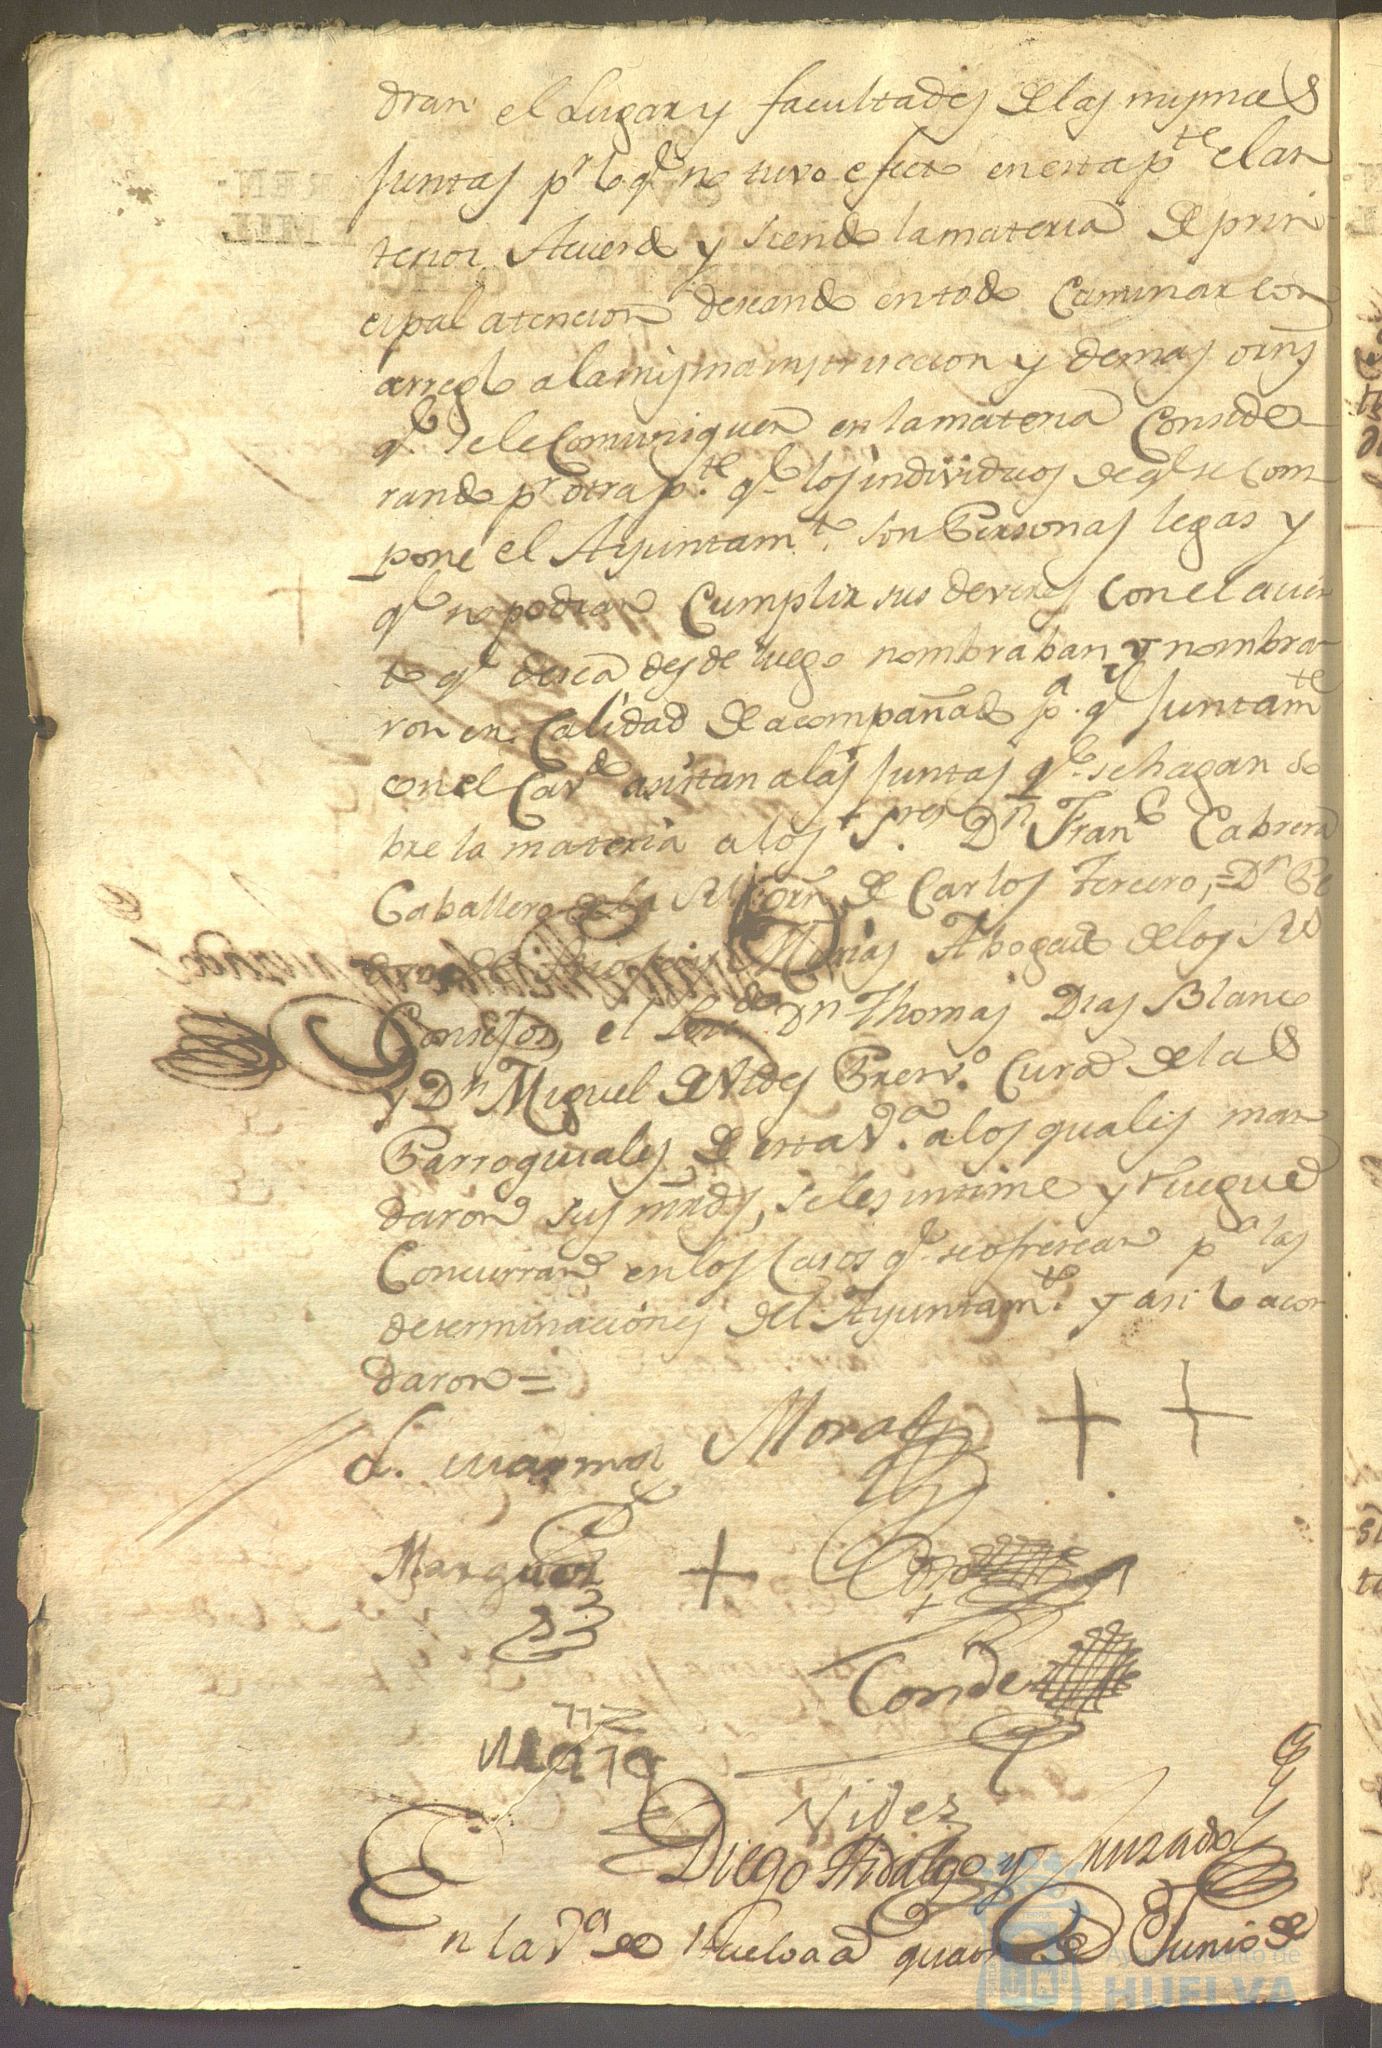 dran el Lugar y facultades de las mismas
Juntas pr. lo qe. no tuvo efecto en esta pte. el an
terior Acuerdo y siendo la materia de prin
cipal atencion deseando en todo Caminar con
arreglo a la misma instruccion y demas orns
qe. se le Comuniquen en la materia Conside
rando pr otra pte. qe. los individuos de qe. se com
pone el Ayuntamto. son Personas legas y
qe. no podran Cumplir sus deveres con el acier
to qe. desea desde luego nombraban y nombra
ron en Calidad de acompañado pa. qe. Juntamte
con el Cavdo asistan a las Juntas qe. se hagan so
bre la materia a los Sres. Dn Franco Cabrera
Caballero de la Rl. Orn de Carlos Tercero, = Dn Pe
Morias Abogado de los Rs
Consejos, el Licdo. Dn Thomas Dias Blanco
y Dn Miguel de Vides Presvo. Curas de las
Parroquiales de esta Va. a los quales man
daron sus mrds, se les intime y ruegue
Concurran en los Casos qe. se ofrescan pa las
determinaciones del Ayuntamto. y asi lo acor
daron =
Morales
Marquez
Conde
Videz
Diego Hidalgo y Jurado
En la Va de Huelva a quatro de Junio de
Ayuntamiento de
HUELVA